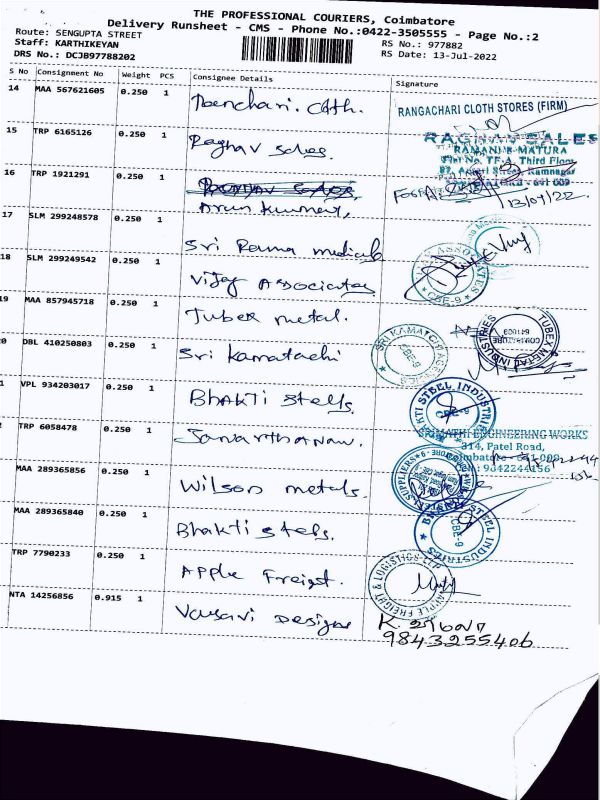 THE PROFESSIONAL COURIERS, Coimbatore
Delivery Runsheet - CMS - Phone No.:0422-3505555 - Page No.:2
Route: SENGUPTA STREET
Staff: KARTHIKEYAN
DRS No.: DCJB97788202
RS No.: 977882
RS Date: 13-Jul-2022
S No Consignment No Weight PCS Consignee Details Signature
14 MAA 567621605 0.250 1
RANGACHARI CLOTH STORES (FIRM)
15 TRP 6165126 0.250 1 Raghav sales
RAGHAV SALES
RAMANI K MATURA
Third Floor
Ramnagar
641 009
16 TRP 1921291 0.250 1 Arun kumar,
13/07/22
17 SLM 299248578 0.250 1 Sri Rama medicals
18 SLM 299249542 0.250 1 Vijay Associates
ASSOCIATES
CBE-9
19 MAA 857945718 0.250 1 Tuber metal.
TUBEX METAL INDUSTRIES
0 DBL 410250803 0.250 1 Sri Kamatachi
SRI KAMATCHI
CBE-9
1 VPL 934203017 0.250 1 Bhakti stells.
BHAKTI STEEL INDUSTRIES
CBE-9
2 TRP 6058478 0.250 1 Janarthanan.
ENGINEERING WORKS
314, Patel Road,
Coimbatore - 641 009
9842244156
MAA 289365856 0.250 1 Wilson metals.
MAA 289365840 0.250 1 Bhakti stells.
STEEL INDUSTRIES
CBE-9
TRP 7790233 0.250 1 Apple Freight.
APPLE FREIGHT & LOGISTICS LLP
NTA 14256856 0.915 1 Designs
9843255406